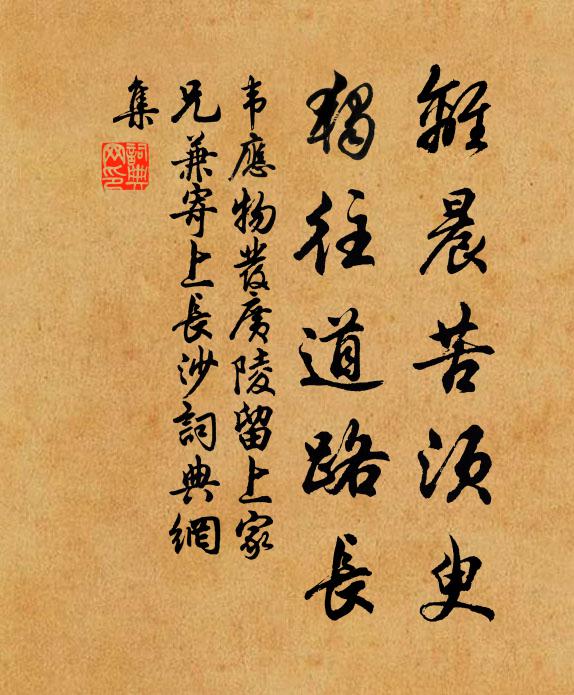 離晨苦須臾
獨往道路長
韦應物發廣陵留上家
兄兼寄上長沙詞典網
集
詞典
网印